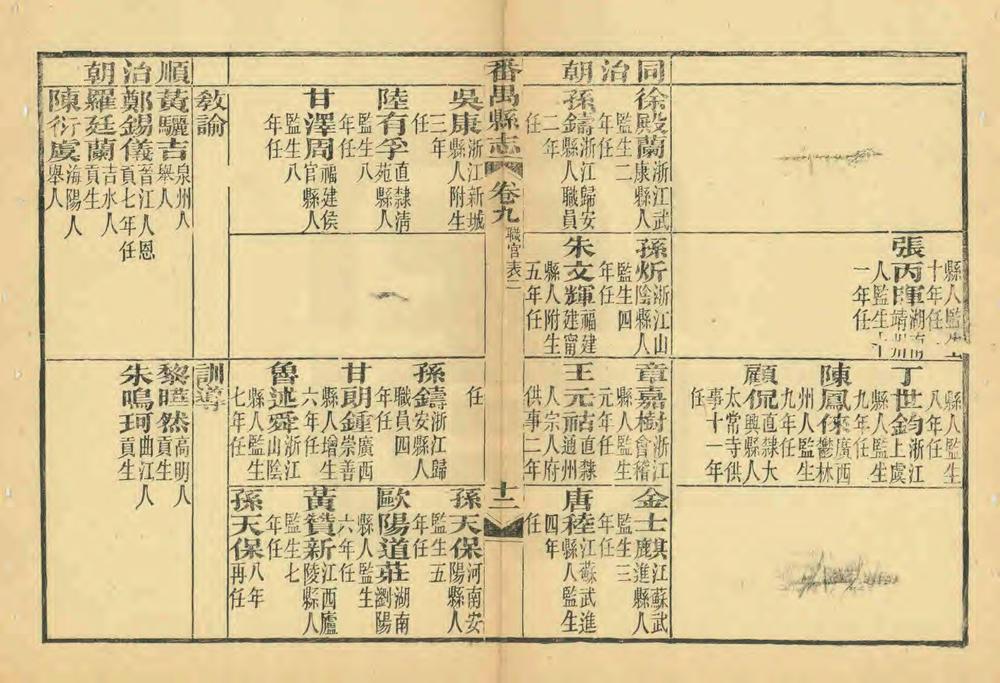 縣人監生
十年任
張丙暉湖南靖州人監生十一年任
縣人監生
八年任
丁世鈞浙江上虞縣人監生九年任
陳鳳倈廣西鬱林州人監生九年任
顧侃直隸大興縣人太常寺供事十一年任
同治朝
徐殿蘭浙江武康縣人監生二年任
孫鑄浙江歸安縣人職員二年任
孫炘浙江山陰縣人監生四年任
朱文輝福建建甯縣人附生五年任
章嘉樹浙江會稽縣人監生元年任
王元祜直隸通州人宗人府供事二年任
金士麒江蘇武進縣人監生三年任
唐稑江蘇武進縣人監生四年任
番禺縣志
卷九
職官表二
十二
吳康浙江新城縣人附生三年任
陸有孚直隸清苑縣人監生八年任
甘澤周福建侯官縣人監生八年任
任
孫鑄浙江歸安縣人職員四
甘朗鍾廣西崇善縣人增生六年任
魯述舜浙江山陰縣人監生七年任
孫天保河南安陽縣人監生五年任
歐陽道莊湖南瀏陽縣人監生六年任
黃贊新江西廬陵縣人監生七年任
孫天保八年再任
順治朝
教諭
黃驪吉泉州人舉人
鄭錫儀晉江人恩貢七年任
羅廷蘭吉水人貢生
陳衍虞海陽人舉人
訓導
黎曄然高明人貢生
朱鳴珂曲江人貢生